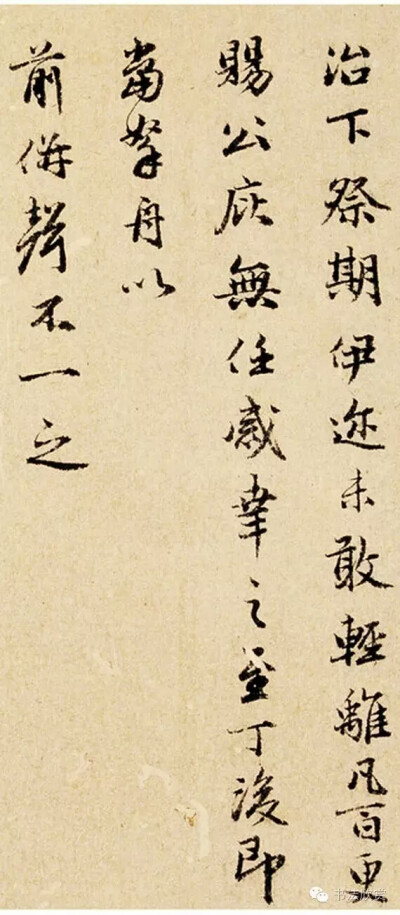 治下祭期伊迩未敢輕離凡百更
賜公庇無任感幸之至丁後即
當拏舟以
前併聲不一之
书法欣赏